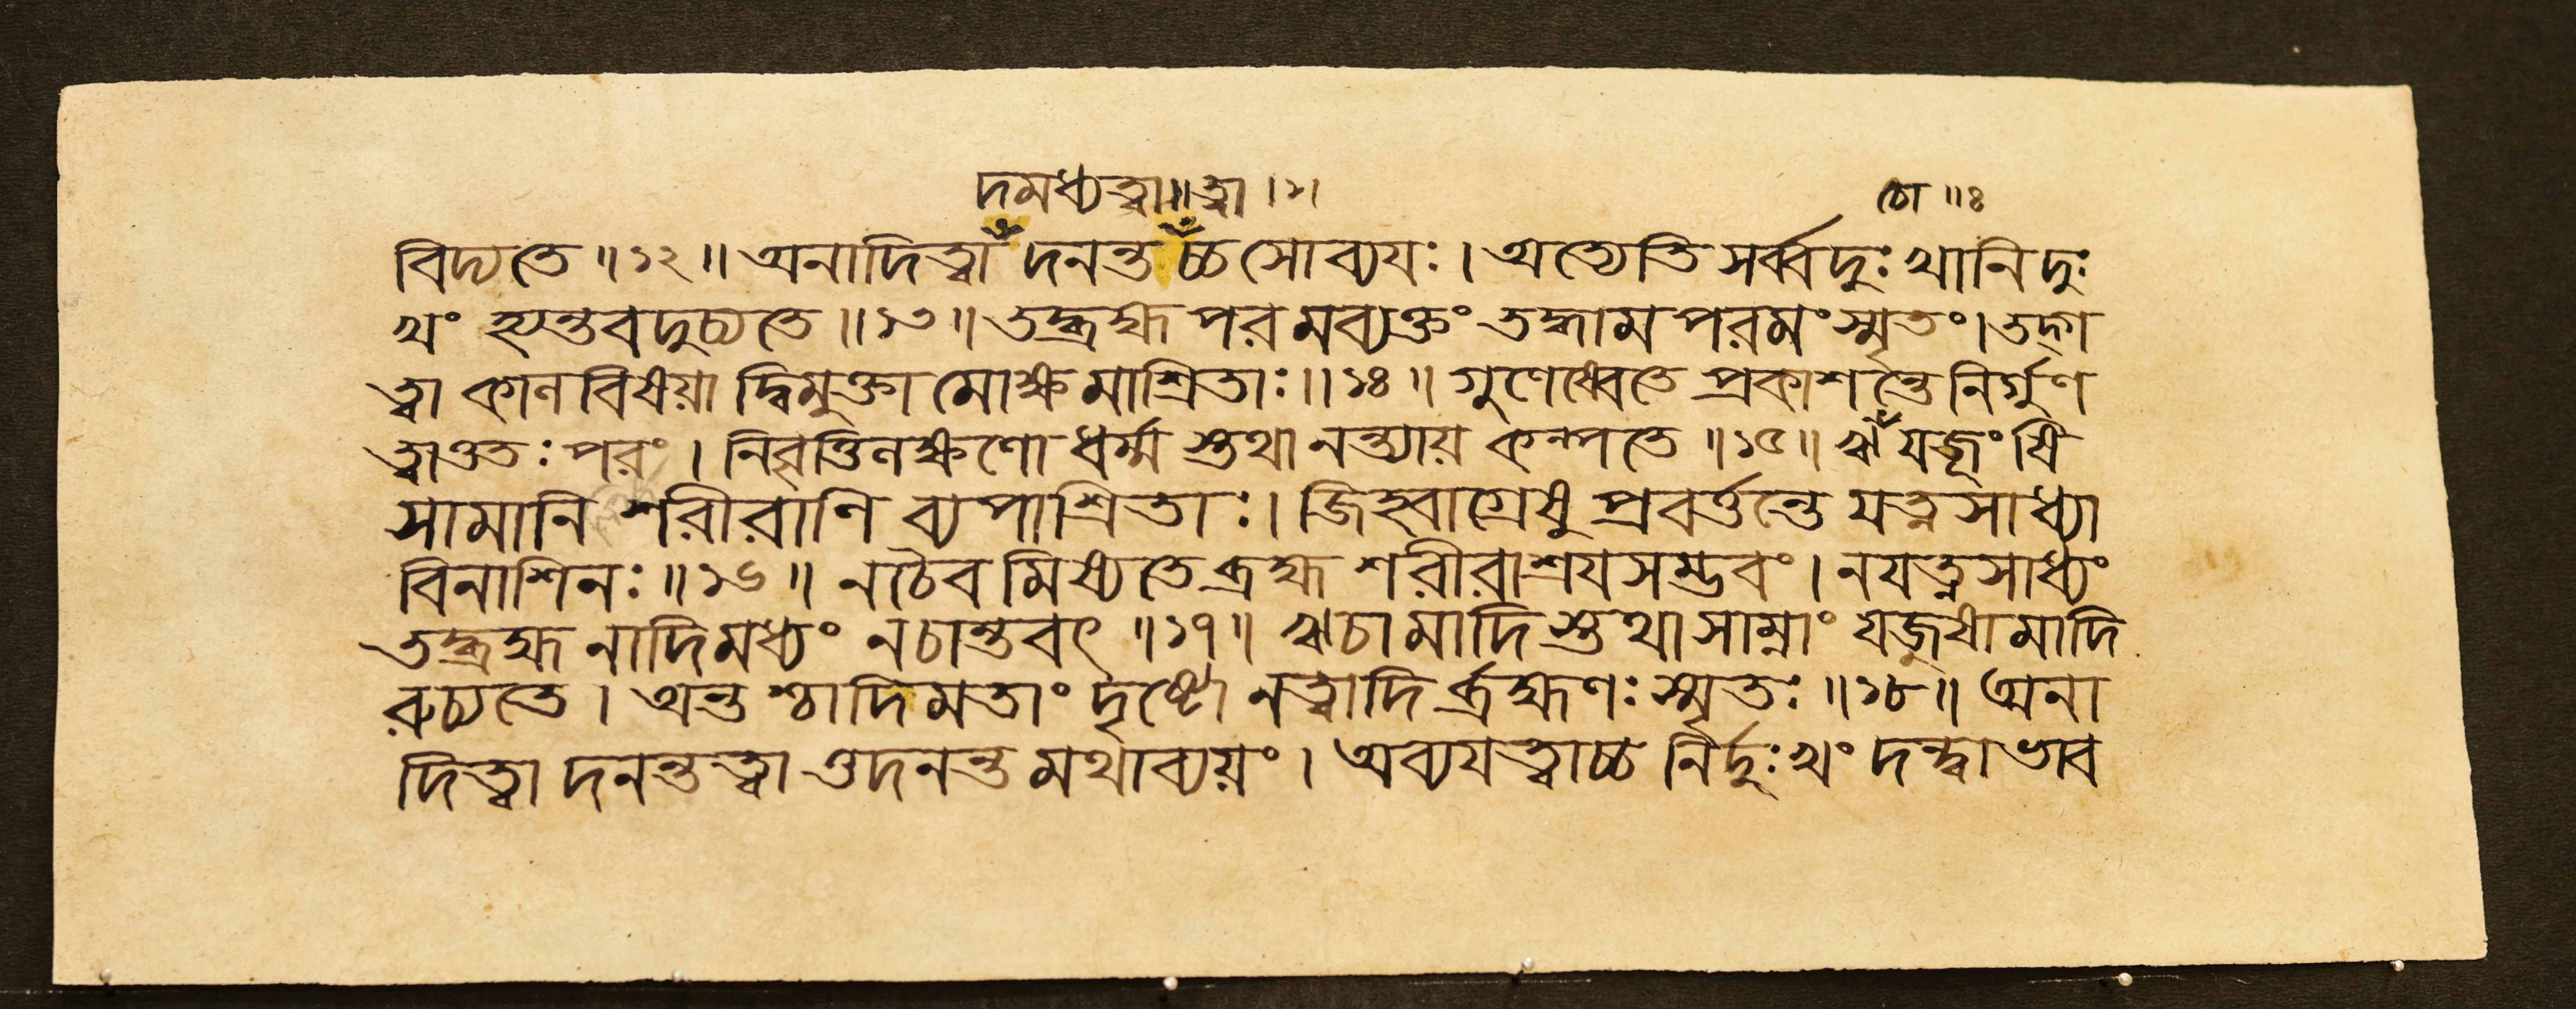 দমধ্যত্বা॥ত্বা ।১। চো ॥৪
বিদ্যতে ॥১২॥ অনাদিত্বা দনন্ত চ্চ সোব্যযঃ। অত্যেতি সর্ব্বদুঃখানিদুঃ
খং হ্যন্তবদুচ্যতে ॥১৩॥ তদ্ব্রহ্ম পরমব্যক্তং তদ্ধাম পরমং স্মৃতং। তদ্গ
ত্বা কালবিষয়া দ্বিমুক্তা মোক্ষমাশ্রিতাঃ॥১৪॥ গুণেষ্বেতে প্রকাশন্তে নির্গুণ
ত্বাত্ততঃ পরং। নিবৃত্তিলক্ষণো ধর্ম্ম স্তথানন্ত্যায় কল্পতে ॥১৫॥ ঋ যজূংষি
সামানি শরীরাণি ব্যপাশ্রিতাঃ। জিহ্বাগ্রেষু প্রবর্ত্তন্তে যত্নসাধ্যা
বিনাশিনঃ॥১৬॥ নচৈবমিষ্যতে ব্রহ্ম শরীরাশ্রযসম্ভবং। নযত্নসাধ্যং
তদ্ব্রহ্ম নাদিমধ্যং নচান্তবৎ ॥১৭॥ ঋচামাদি স্তথাসাম্নাং যজুষামাদি
রুচ্যতে। অন্ত শ্চাদিমতাং দৃষ্টো নত্বাদি র্ব্রহ্মণঃ স্মৃতঃ॥১৮॥ অনা
দিত্বা দনন্তত্বা ত্তদনন্ত মথাব্যয়ং। অব্যযত্বাচ্চ নির্দুঃখং দন্দ্বাভাব